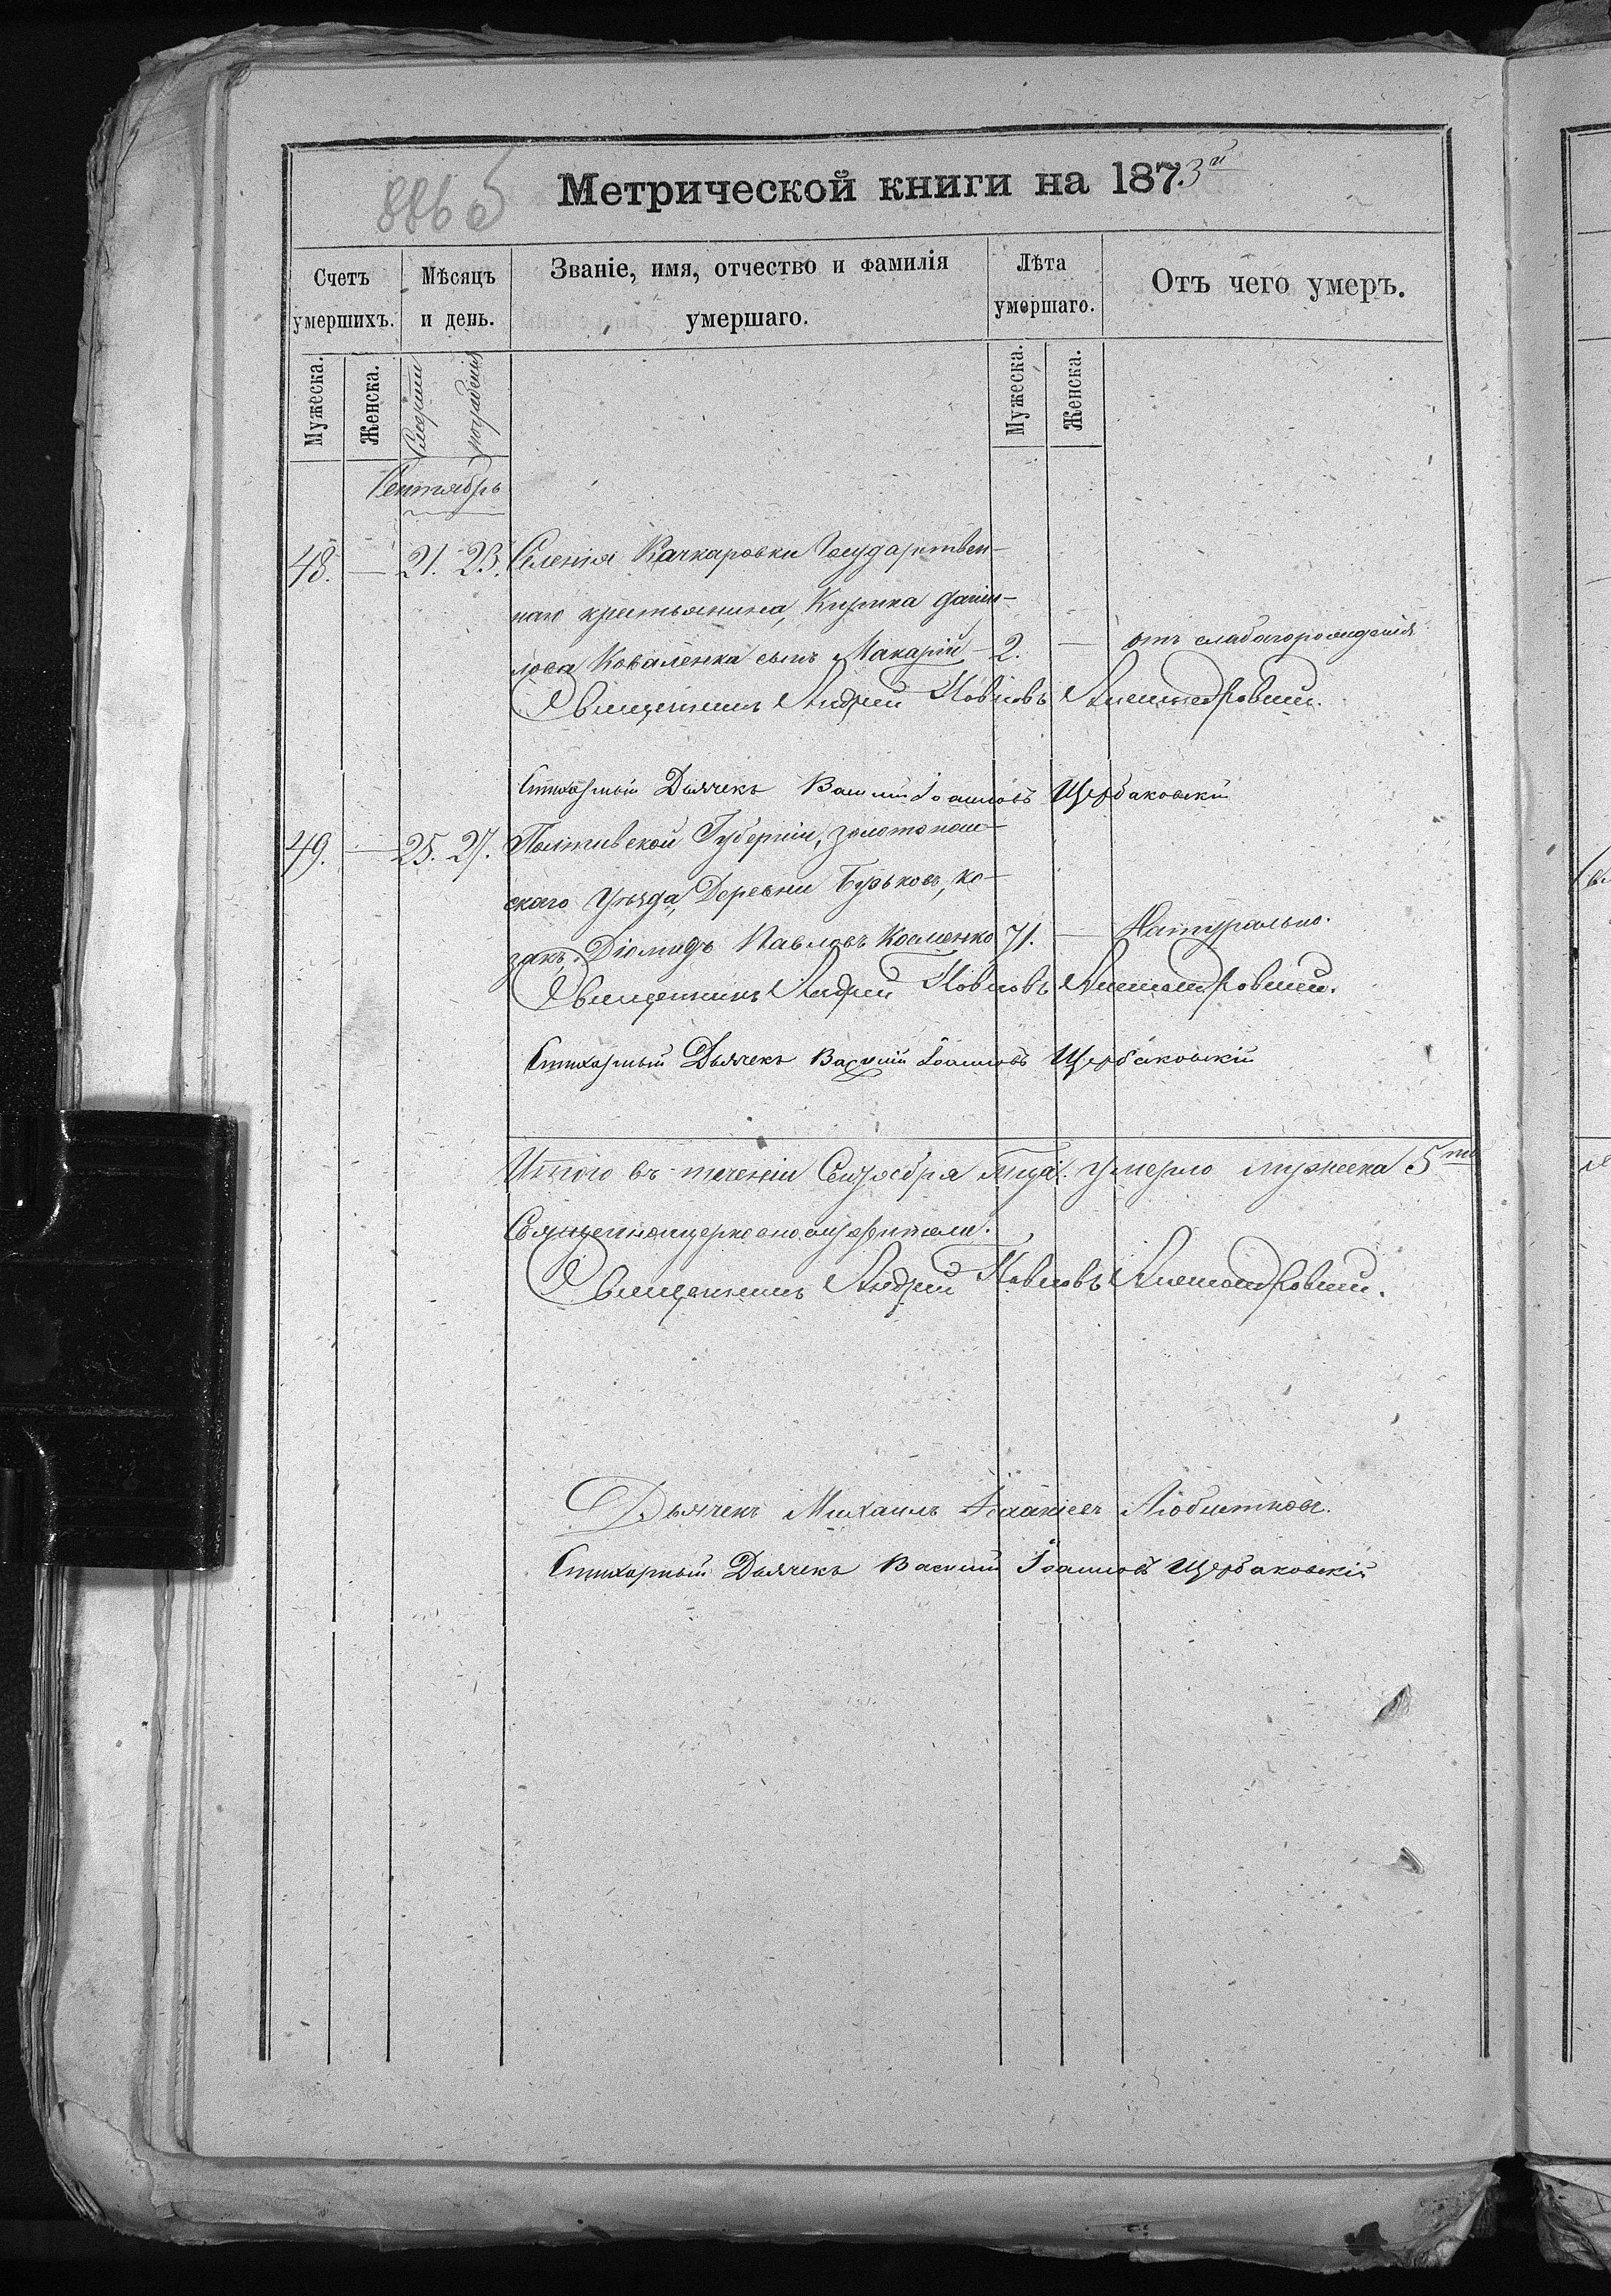 886 б
Метрической книги на 1873й
Счетъ умершихъ.
Мѣсяцъ и день.
Званіе, имя, отчество и фамилія умершаго.
Лѣта умершаго.
Отъ чего умеръ.
Мужеска.
Женска.
Смерти
погребенія
Мужеска.
Женска.
Сентябрь
48. — 21. 23. Селенія Качкаровки Государствен-
наго крестьянина, Кирика Даніи-
лова Коваленка сынъ Макарій 2. — отъ слабагорожденія
Священникъ Андрей Павловъ Александровскій.
Стихарный Дьячекъ Василій Іоанновъ Щербаковскій
49. — 25. 27. Полтавской Губерніи, золотонош-
скаго уѣзда, Деревни Бурьковъ, ко-
закъ Діомидъ Павловъ Косменко 71. — Натурально.
Священникъ Андрей Павловъ Александровскій.
Стихарный Дьячекъ Василій Іоанновъ Щербаковскій
Итого въ теченіи Сентября мца умерло мужеска 5ть
Священноцерковнослужители.
Священникъ Андрей Павловъ Александровскій.
Дьячекъ Михаилъ Исаакіевъ
Стихарный Дьячекъ Василій Іоанновъ Щербаковскій